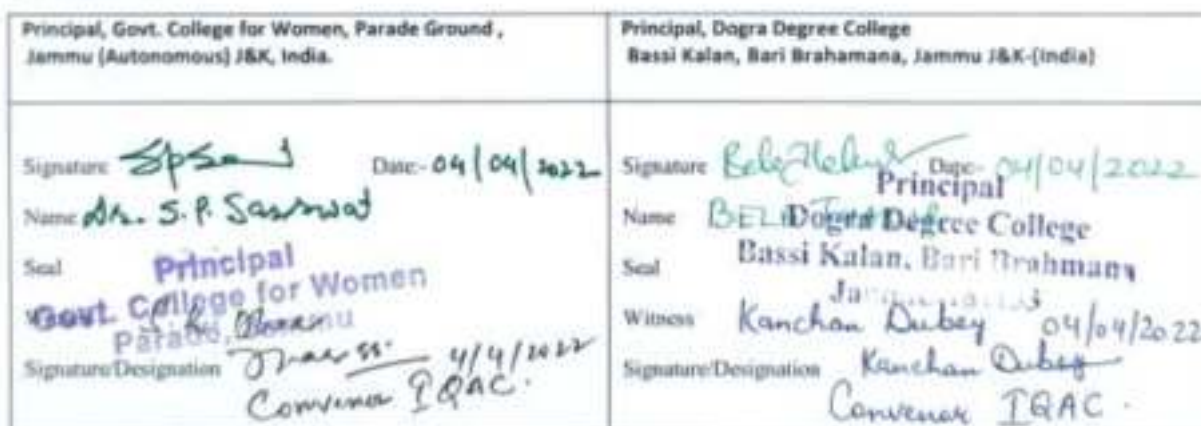 Principal, Govt. College for Women, Parade Ground ,
Jammu (Autonomous) J&K, India.
Signature Date:- 04/04/2022
Name Dr. S. P. Sarswat
Seal Principal
Govt. College for Women
Parade,
Signature/Designation 4/4/2022
Convenor IQAC.
Principal, Dogra Degree College
Bassi Kalan, Bari Brahamana, Jammu J&K-(India)
Signature Date:- 04/04/2022
Principal
Name Dogra Degree College
Seal Bassi Kalan, Bari Brahmana
Witness Kanchan Dubey 04/04/2022
Signature/Designation Kanchan Dubey
Convenor IQAC.